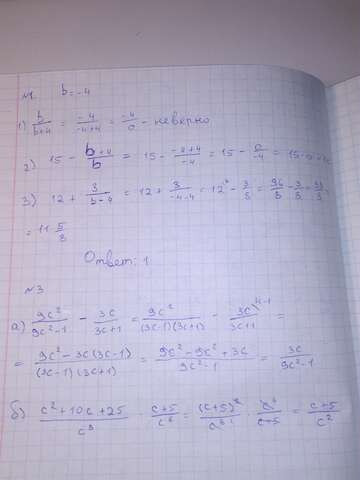 №1. b = -4
1) b/(b+4) = -4/(-4+4) = -4/0 - неверно
2) 15 - (b+4)/b = 15 - (-4+4)/-4 = 15 - 0/-4 = 15-0
3) 12 + 3/(b-4) = 12 + 3/(-4-4) = 12 - 3/8 = 96/8 - 3/8
= 11 5/8
Ответ: 1
№3
а) 9c²/(9c²-1) - 3c/(3c+1) = 9c²/((3c-1)(3c+1)) - 3c/(3c+1) =
= (9c² - 3c(3c-1))/((3c-1)(3c+1)) = (9c² - 9c² + 3c)/(9c²-1) = 3c/(9c²-1)
б) (c²+10c+25)/c³ (c+5)/c = (c+5)²/c³ · c/(c+5) = (c+5)/c²